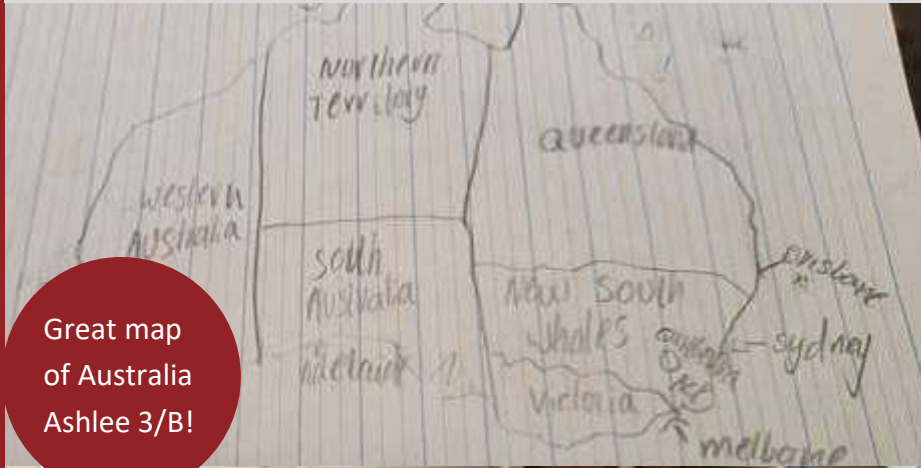 Northern
Territory
Queensland
Western
Australia
South
Australia
New South
Whales
Sydney
Victoria
melborne
Great map
of Australia
Ashlee 3/B!